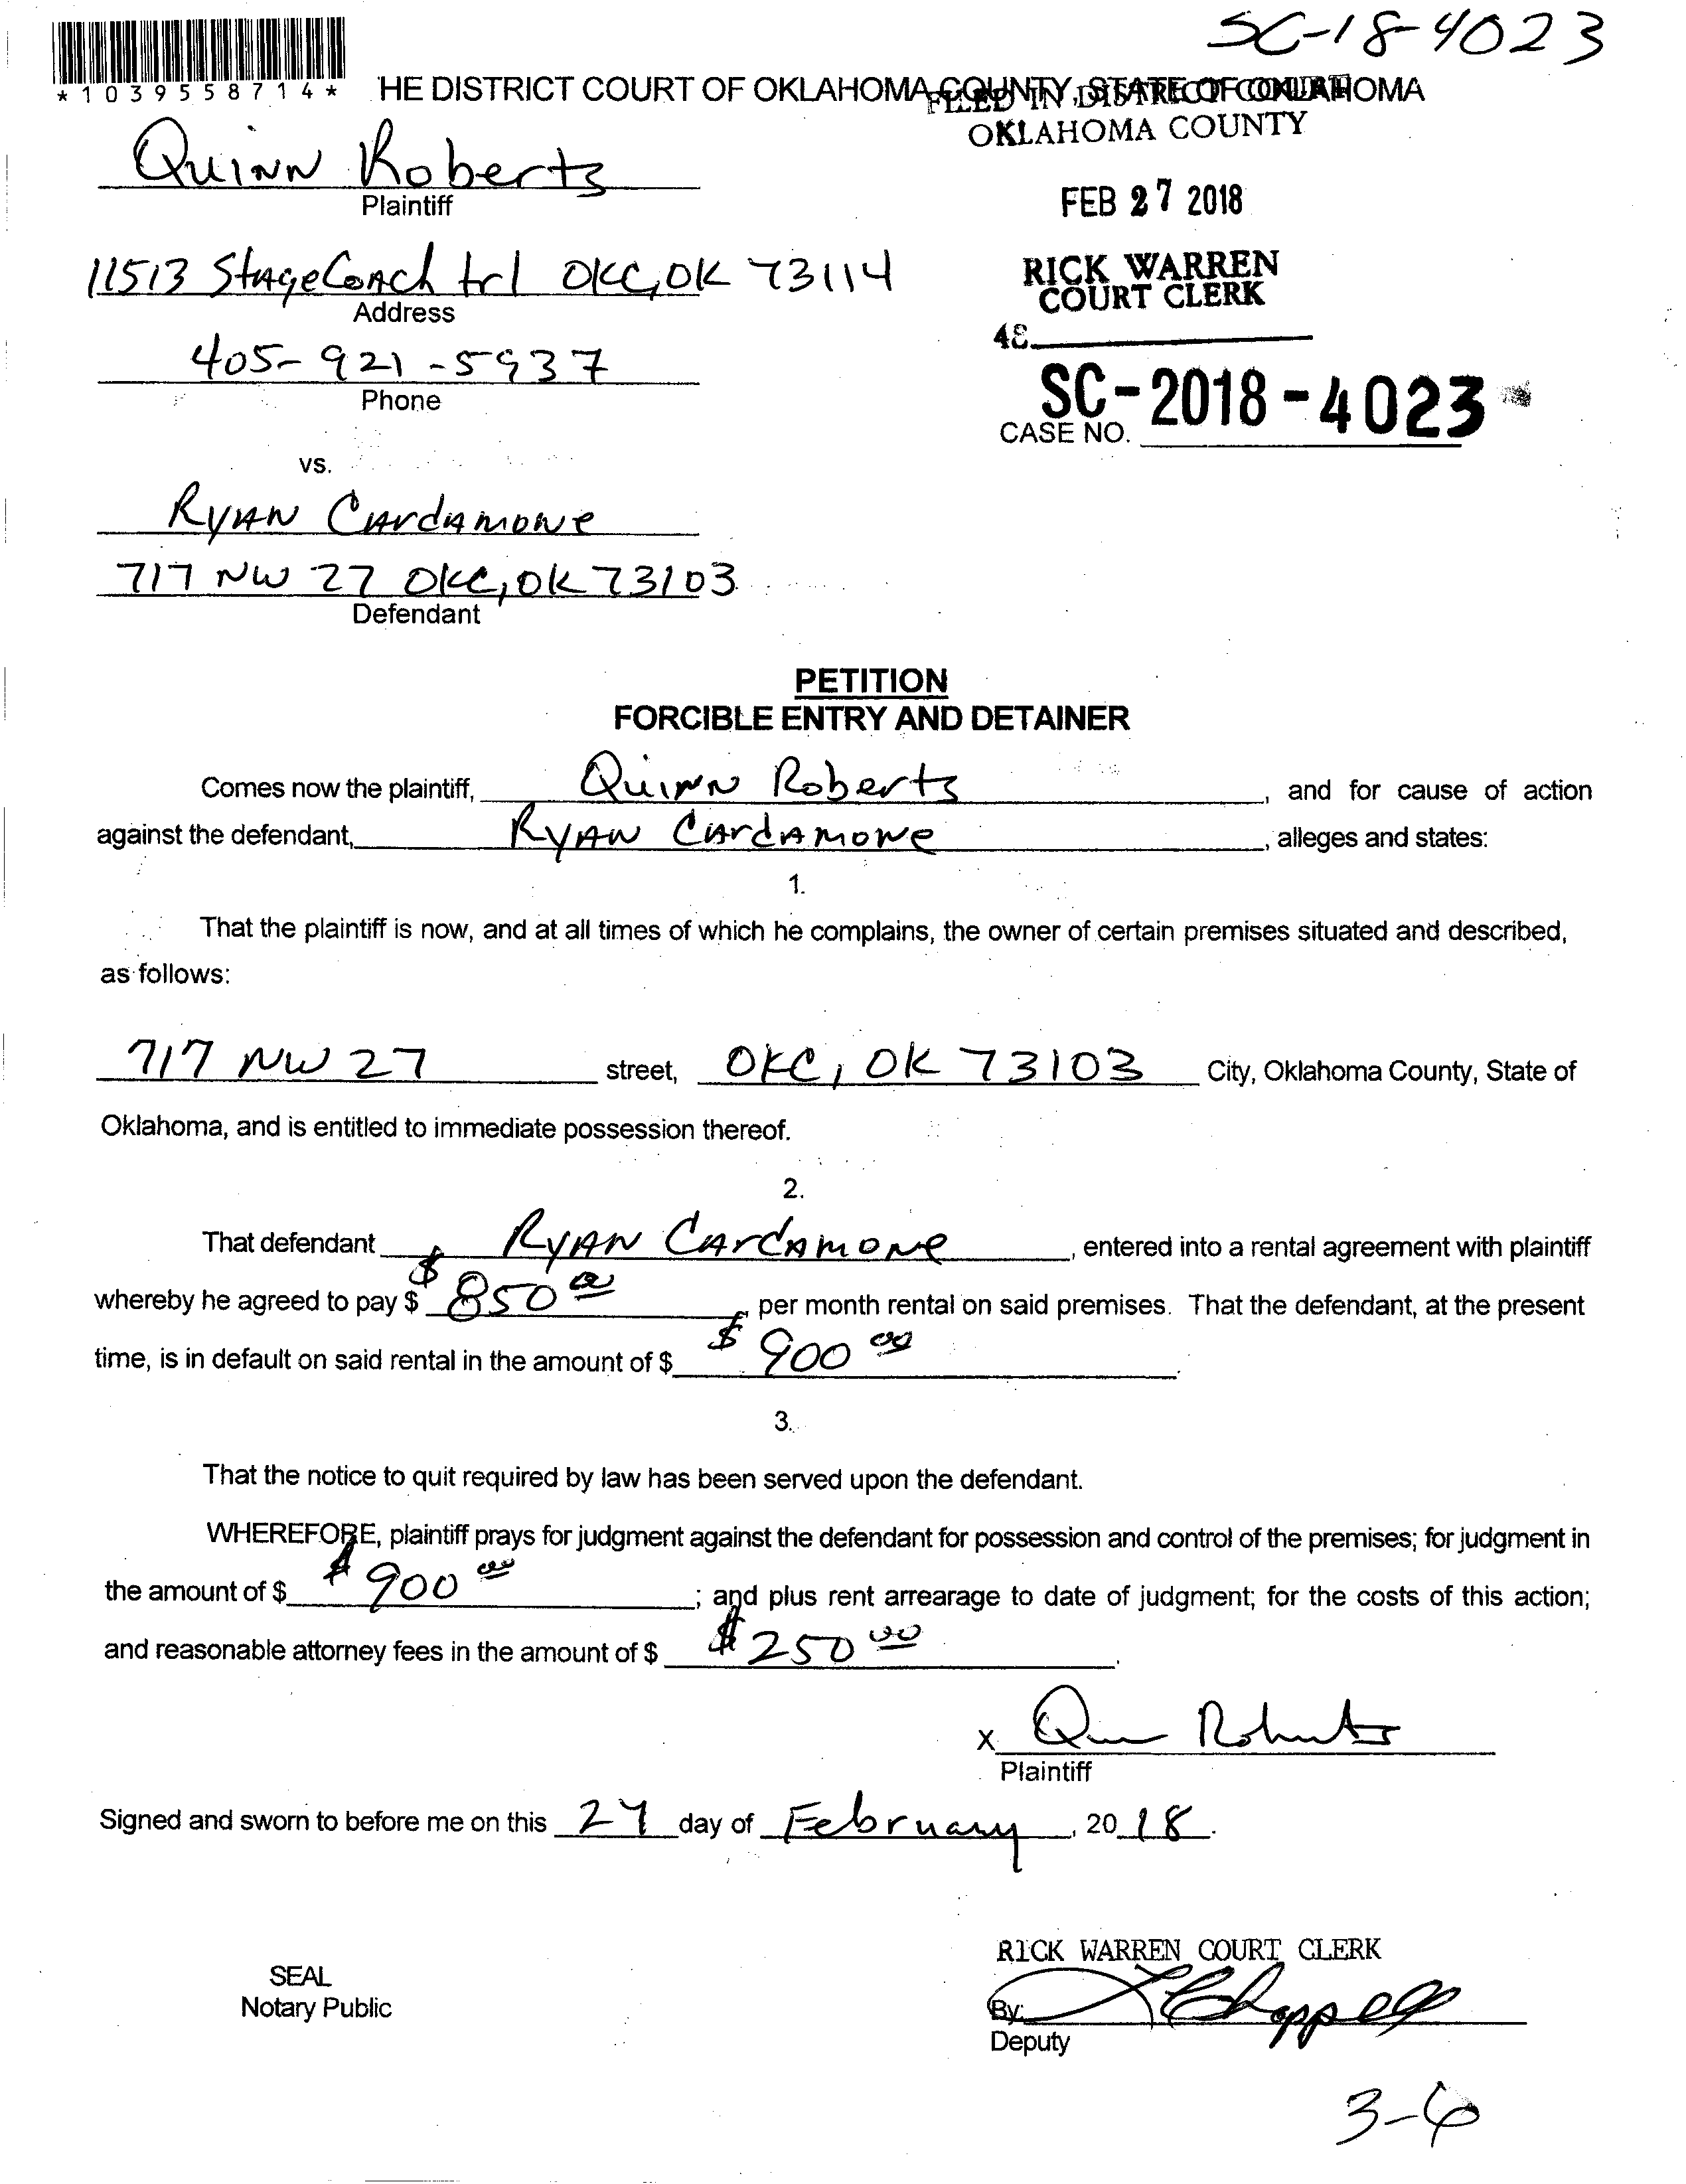 SC-18-4023
*1039558714*
HE DISTRICT COURT OF OKLAHOMA COUNTY, STATE OF OKLAHOMA
FILED IN DISTRICT COURT
OKLAHOMA COUNTY
Quinn Roberts
Plaintiff
FEB 27 2018
11513 StageCoach trl OKC, OK 73114
Address
RICK WARREN
COURT CLERK
48
405-921-5937
Phone
SC-2018-4023
CASE NO.
vs.
Ryan Cardamone
717 NW 27 OKC, OK 73103
Defendant
PETITION
FORCIBLE ENTRY AND DETAINER
Comes now the plaintiff, Quinn Roberts, and for cause of action
against the defendant, Ryan Cardamone, alleges and states:
1.
That the plaintiff is now, and at all times of which he complains, the owner of certain premises situated and described,
as follows:
717 NW 27 street, OKC, OK 73103 City, Oklahoma County, State of
Oklahoma, and is entitled to immediate possession thereof.
2.
That defendant Ryan Cardamone, entered into a rental agreement with plaintiff
whereby he agreed to pay $ $850 00, per month rental on said premises. That the defendant, at the present
time, is in default on said rental in the amount of $ $900 00.
3.
That the notice to quit required by law has been served upon the defendant.
WHEREFORE, plaintiff prays for judgment against the defendant for possession and control of the premises; for judgment in
the amount of $ $900 00; and plus rent arrearage to date of judgment; for the costs of this action;
and reasonable attorney fees in the amount of $ $250 00.
X Quinn Roberts
Plaintiff
Signed and sworn to before me on this 27 day of February, 2018.
RICK WARREN COURT CLERK
SEAL
Notary Public
By: Chappell
Deputy
3-6